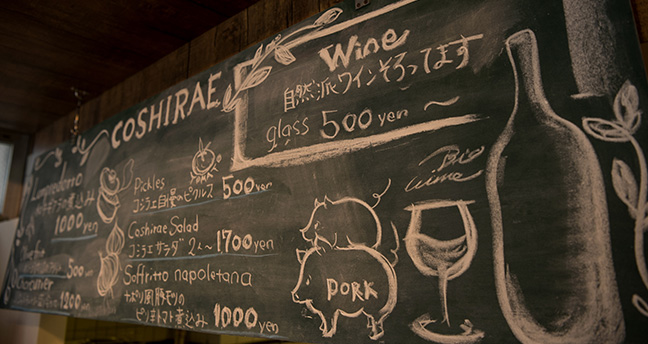 COSHIRAE
Wine
自然派ワインそろってます
glass 500 yen 〜
Bio
wine
Lampredotto
1000 yen
500 yen
1200 yen
Pickles
コシラエ自慢のピクルス 500 yen
Coshirae Salad
コシラエサラダ 2人〜 1700 yen
Soffritto napoletana
ナポリ風豚モツの
ピリ辛トマト煮込み 1000 yen
PORK